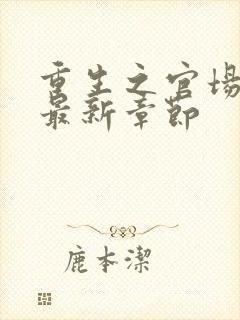 重生之官场
最新章节
鹿本潔